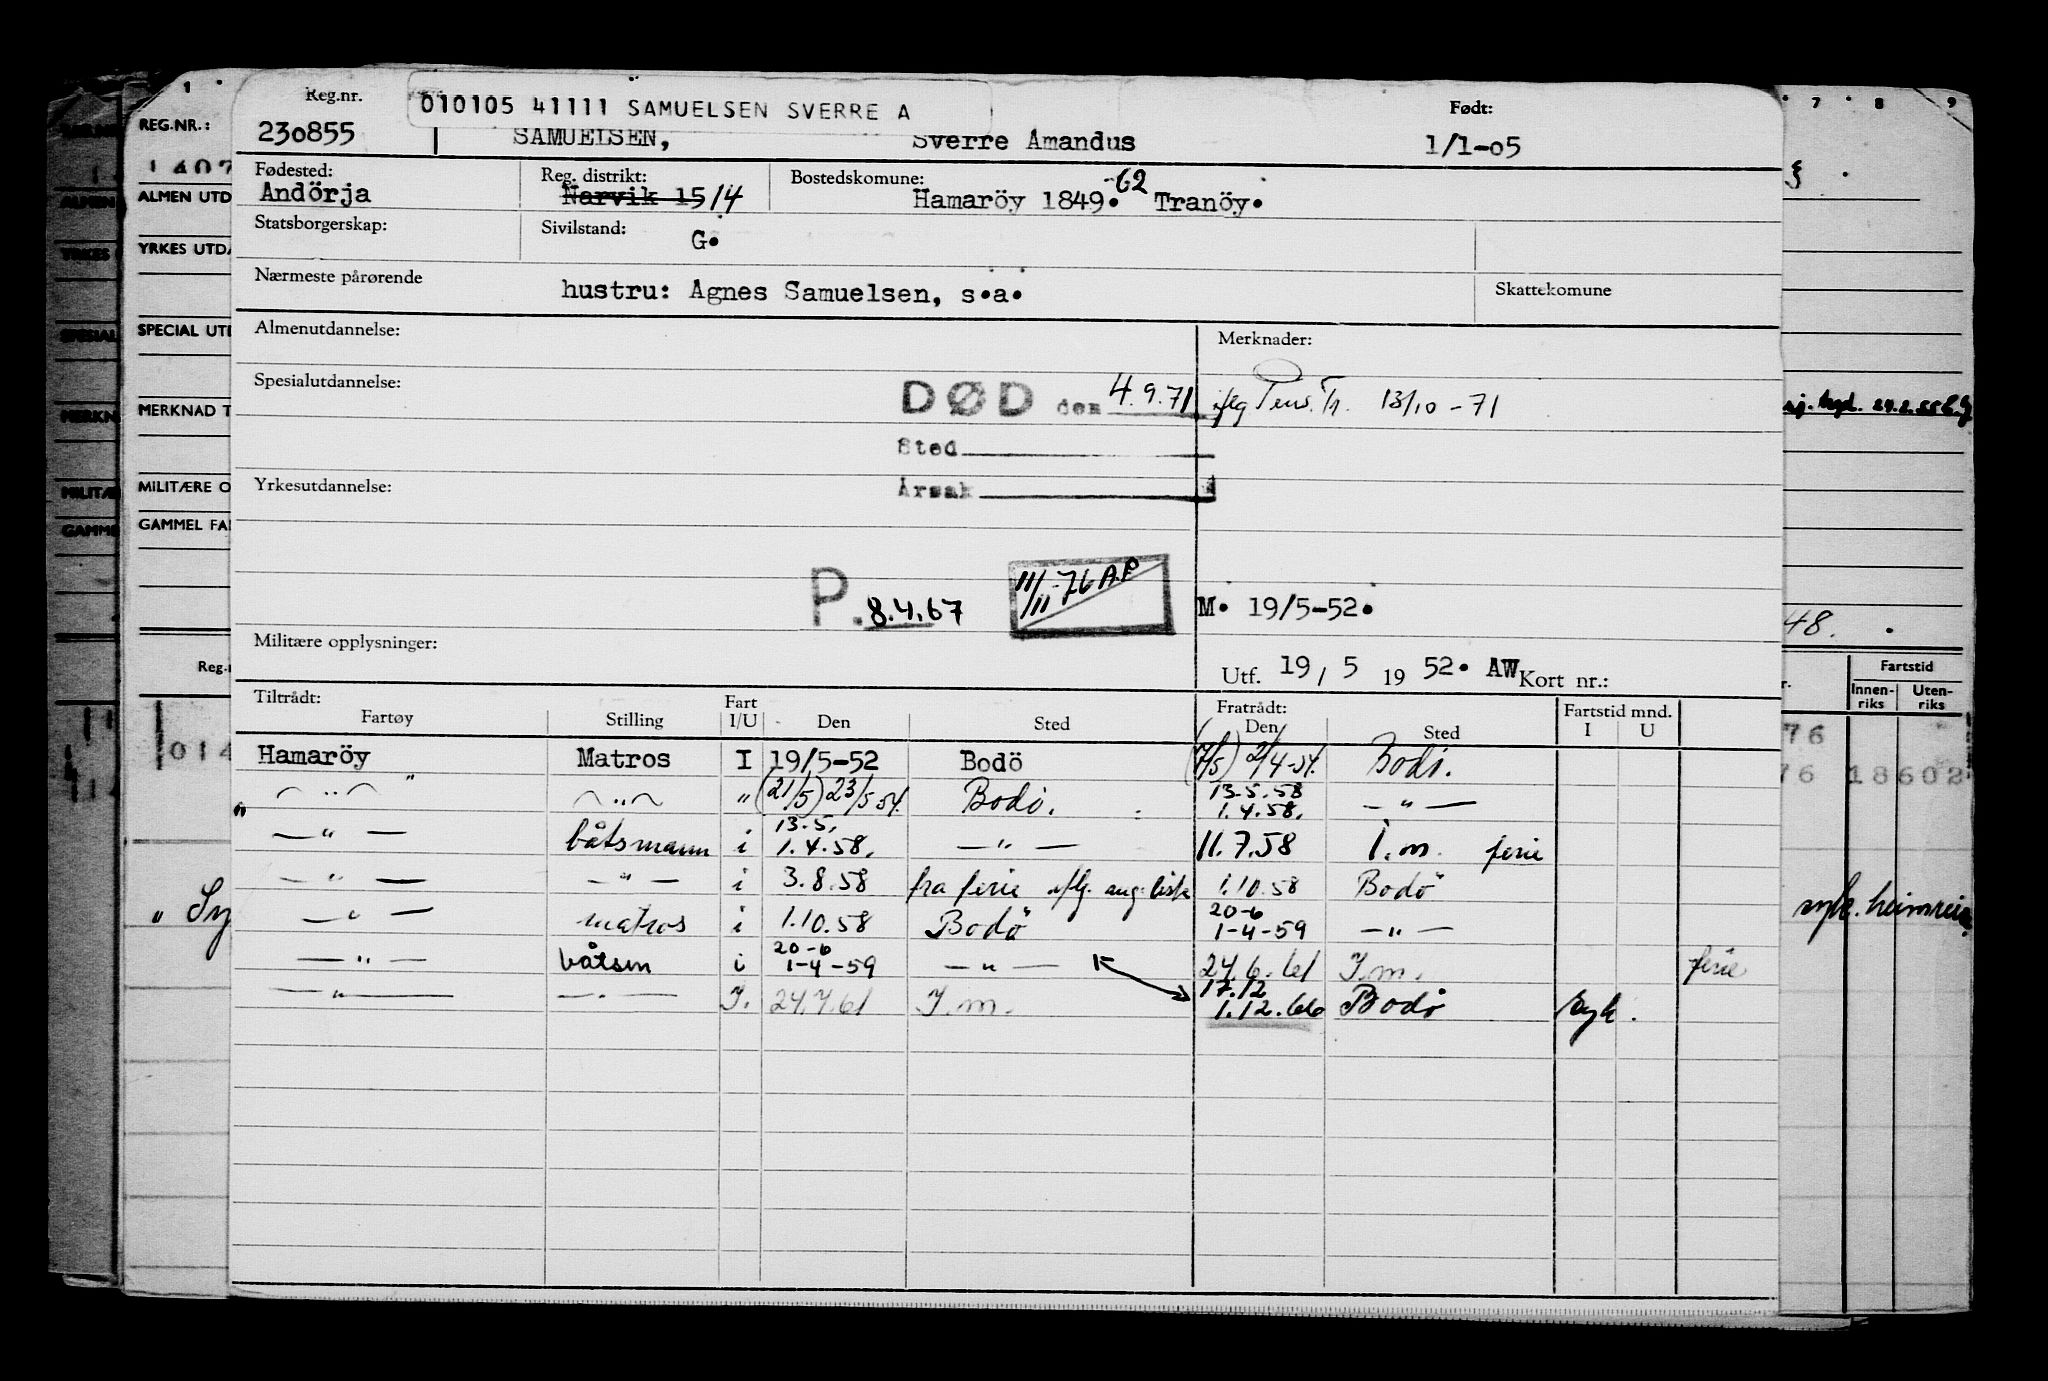 Reg.nr. 010105 41111 SAMUELSEN SVERRE A Født:
230855 SAMUELSEN, Sverre Amandus 1/1-05
Fødested: Reg. distrikt: Bostedskomune: -62
Andörja Narvik 15/4 Hamaröy 1849. Tranöy.
Statsborgerskap: Sivilstand: G.
Nærmeste pårørende hustru: Agnes Samuelsen, s.a. Skattekomune
Almenutdannelse: Merknader:
Spesialutdannelse: DØD den 4.9.71 iflg Pens.Tr. 13/10-71
Sted
Yrkesutdannelse: Årsak
P. 8.4.67 11/11-76 A.P M. 19/5-52.
Militære opplysninger:
Utf. 19/5 1952. AW Kort nr.:
Tiltrådt: Fratrådt:
Fartøy Stilling Fart I/U Den Sted Den Sted Fartstid mnd. I U
Hamaröy Matros I 19/5-52 Bodö (7/5) 2/4-54. Bodö.
" — " — — " — " (21/5) 23/5 54. Bodö. 13.5.58 1.4.58. — " —
— " — båtsmann i 13.5. 1.4.58. — " — 11.7.58 I.m. ferie
— " — — " — i 3.8.58 fra ferie iflg. aug. liste 1.10.58 Bodö
— " — matros i 1.10.58 Bodö 20-6 1-4-59 — " —
— " — båtsm i 20-6 1-4-59 — " — 24.6.61 I.m. ferie
— " — — " — I. 24.7.61 I.m. 17.12 1.12.66 Bodö syk.
REG.NR.:
ALMEN UTD
YRKES UTDA
SPECIAL UTD
MERKNAD T
MILITÆRE O
GAMMEL FA
Reg.
014
" Sy
7 8 9
24.2.55
48.
Fartstid
Innen-riks Uten-riks
76
76 18602
syk. heimreise